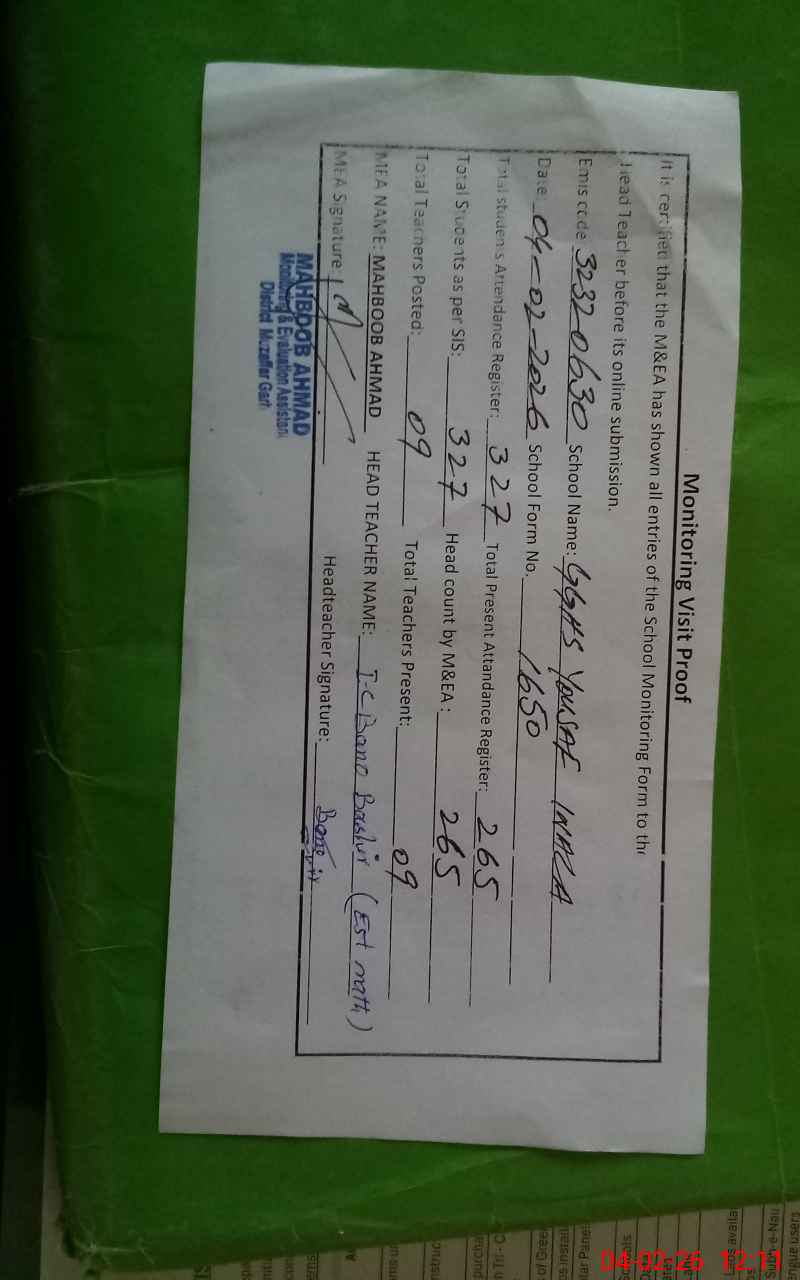 Monitoring Visit Proof
It is certified that the M&EA has shown all entries of the School Monitoring Form to the
Head Teacher before its online submission.
Emis code 32320630 School Name: GGHS YOUSAF
Date: 04-02-2026 School Form No. 1650
Total students Attendance Register: 327 Total Present Attandance Register: 265
Total Students as per SIS: 327 Head count by M&EA: 265
Total Teachers Posted: 09 Total Teachers Present: 09
MEA NAME: MAHBOOB AHMAD HEAD TEACHER NAME: I-C Bano Bashir (Est math)
MEA Signature: Headteacher Signature: Bano
MAHBOOB AHMAD
Monitoring & Evaluation Assistant
District Muzaffar Garh
04-02-26 12:11